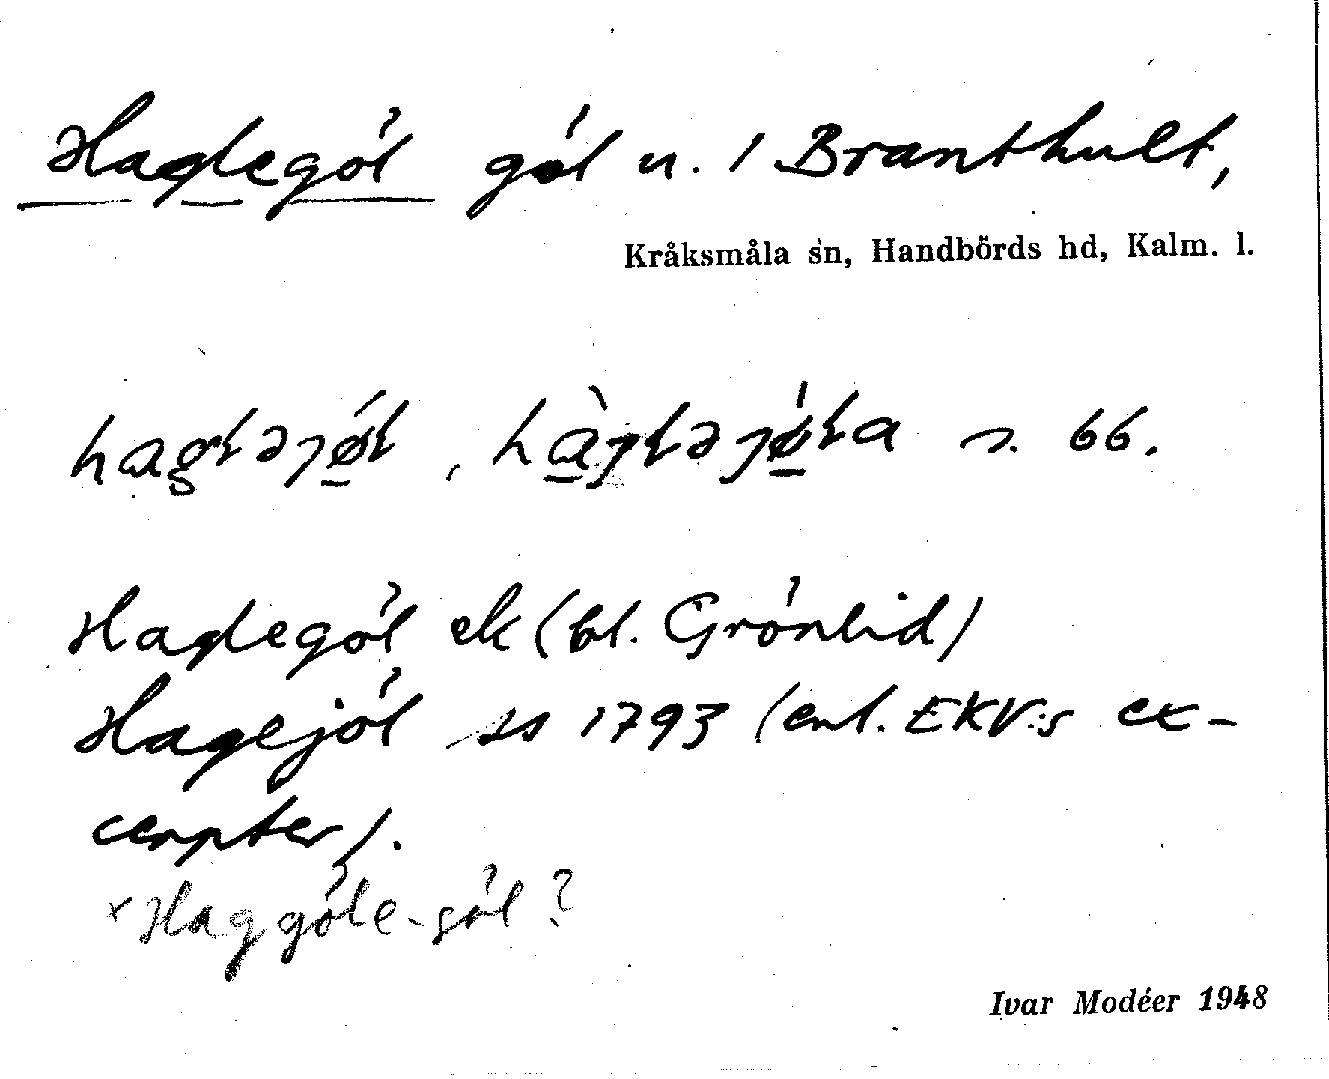 Haglegöl göl u. / Branthult,
Kråksmåla sn, Handbörds hd, Kalm. l.
s. 66.
Haglegöl ek (bl. Grönlid)
Hagejöl ss 1793 (enl. EKV:s ex-
cerpter).
*Haggöle-göl?
Ivar Modéer 1948